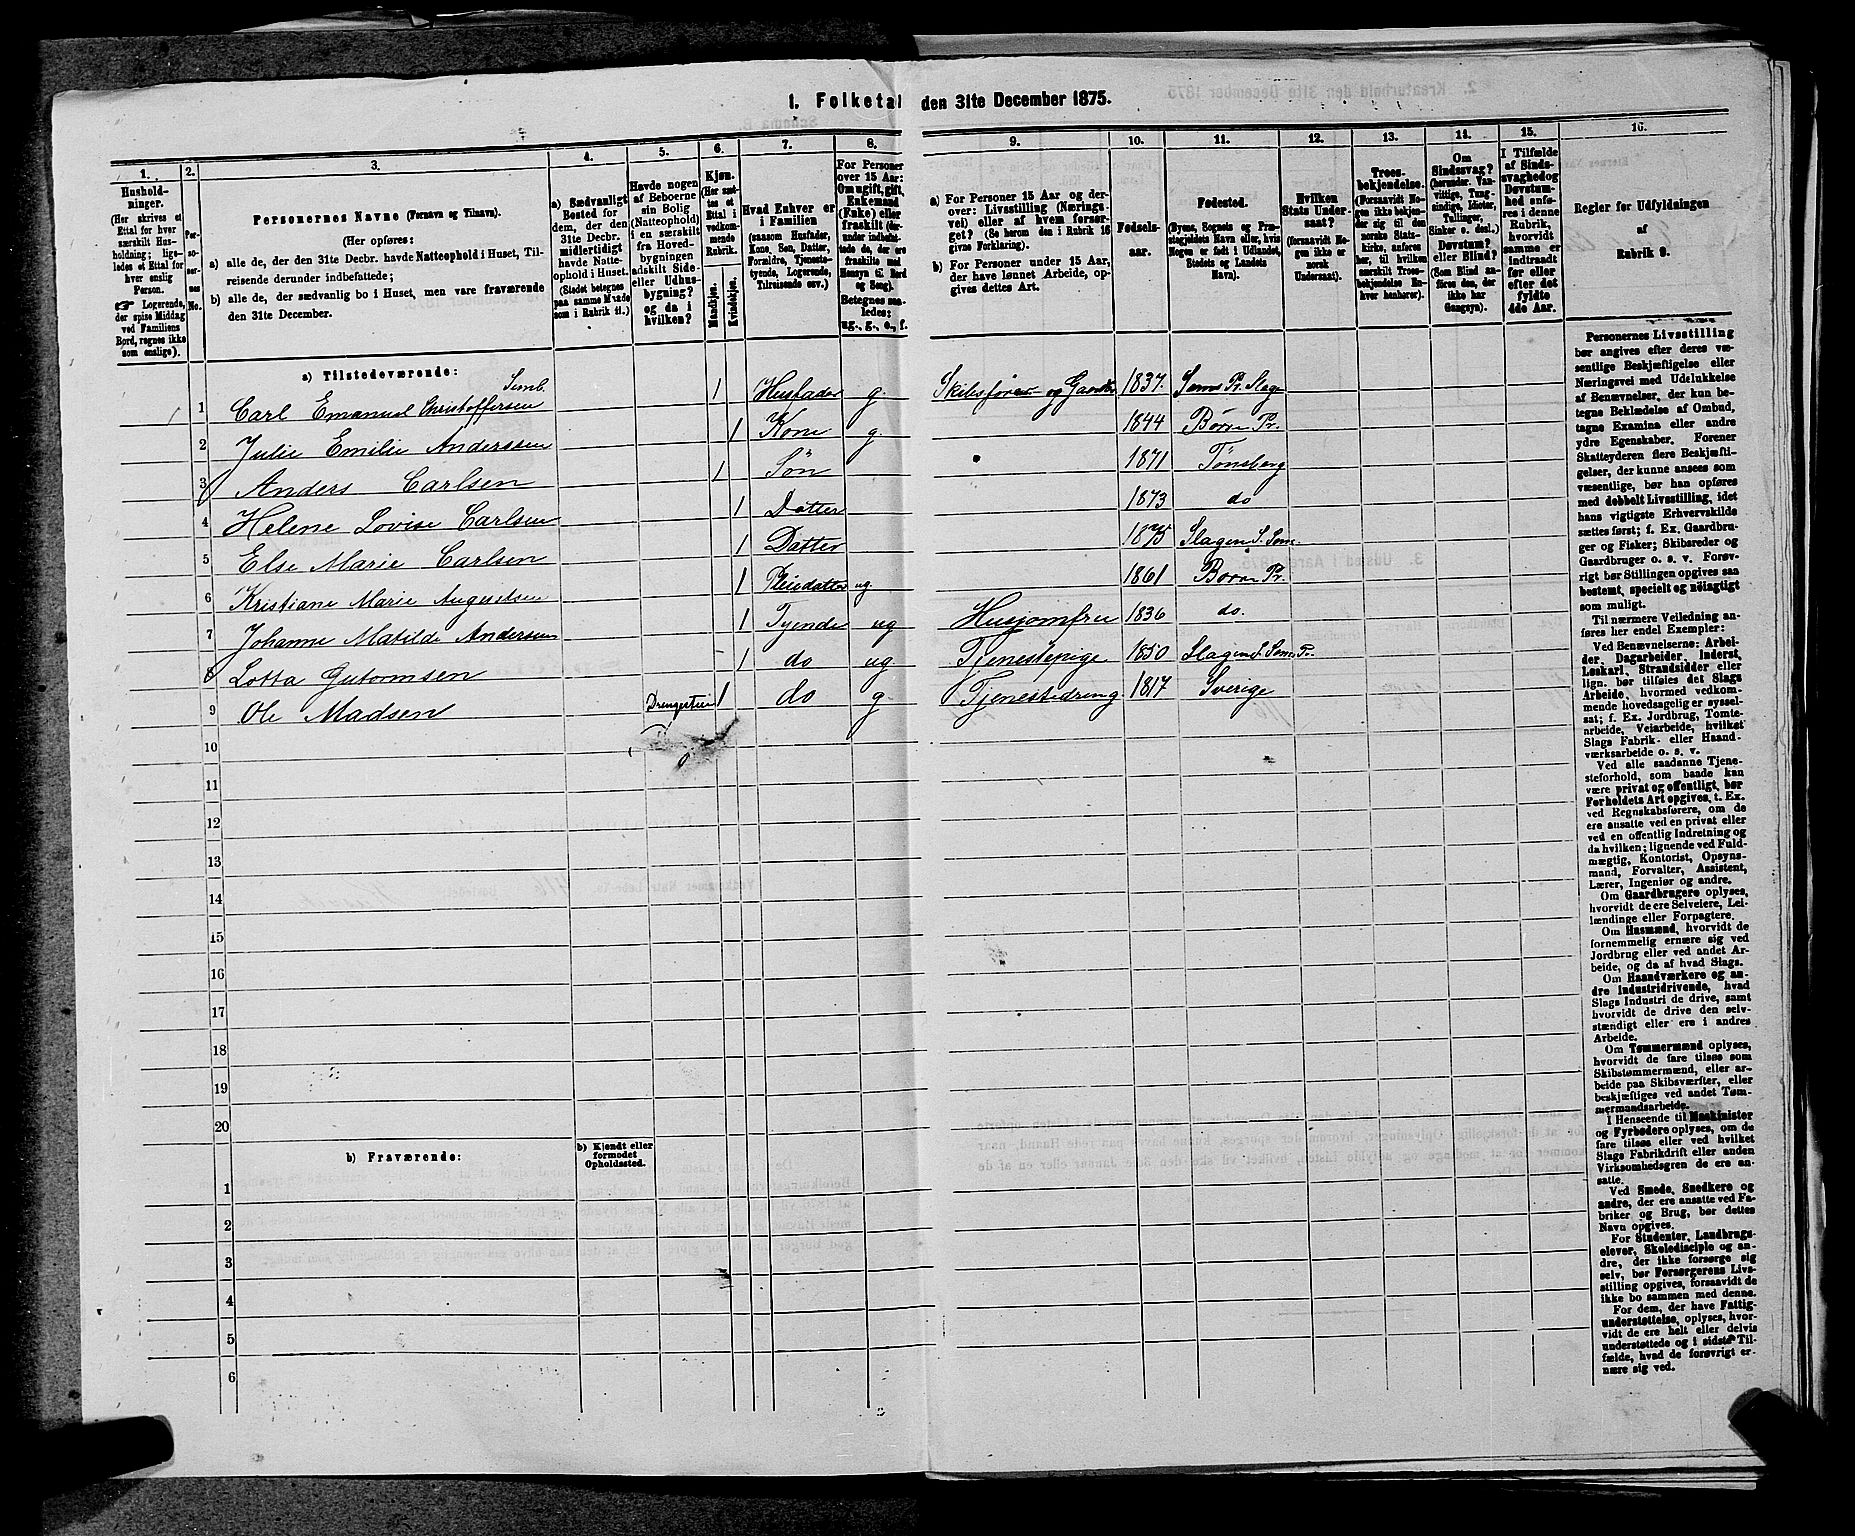 1. Folketal den 31te December 1875.
1.
Hushold-
ninger.
(Her skrives et
Ettal for hver
særskilt Hus-
holdning; lige-
ledes et Ettal for
hver enslig
Person.
☞ Logerende,
der spise Middag
ved Familiens
Bord, regnes ikke
som enslige).
2.
Per-
so-
ner-
nes
No.
3.
Personernes Navne (Fornavn og Tilnavn).
(Her opføres:
a) alle de, der den 31te Decbr. havde Natteophold i Huset, Til-
reisende derunder indbefattede;
b) alle de, der sædvanlig bo i Huset, men vare fraværende
den 31te December.
4.
a) Sædvanligt
Bosted for
dem, der den
31te Decbr.
midlertidigt
havde Natte-
ophold i Huset.
(Stedet betegnes
paa samme Maade
som i Rubrik 11.)
5.
Havde nogen
af Beboerne
sin Bolig
(Natteophold)
i en særskilt
fra Hoved-
bygningen
adskilt Side-
eller Udhus-
bygning?
og da i
hvilken?
6.
Kjøn.
(Her sæt-
tes et
Ettal i
vedkom-
mende
Rubrik.
Mandkjøn.
Kvindekjøn.
7.
Hvad Enhver er
i Familien
(saasom Husfader,
Kone, Søn, Datter,
Forældre, Tjeneste-
tyende, Logerende,
Tilreisende osv.)
8.
For Personer
over 15 Aar:
Om ugift, gift,
Enkemand
(Enke) eller
fraskilt (der-
under indbefat-
tede, de ere
fraskilte med
Hensyn til Bord
og Seng).
Betegnes saa-
ledes:
ug., g., e., f.
9.
a) For Personer 15 Aar og der-
over: Livsstilling (Nærings-
vei) eller af hvem forsør-
get? (Se herom den i Rubrik 16
givne Forklaring).
b) For Personer under 15 Aar,
der have lønnet Arbeide, op-
gives dettes Art.
10.
Fødsels-
aar.
11.
Fødested.
(Byens, Sognets og Præ-
stegjeldets Navn eller, hvis
Nogen er født i Udlandet,
Stedets og Landets
Navn).
12.
Hvilken
Stats Under-
saat?
(forsaavidt No-
gen ikke er
norsk
Undersaat).
13.
Troes-
bekjendelse.
(Forsaavidt No-
gen ikke bekjen-
der sig til den
norske Stats-
kirke, anføres
her, til hvilken
særskilt Troes-
bekjendelse En-
hver henhører).
14.
Om
Sindssvag?
(herunder, Van-
vittige, Tung-
sindige, Idioter,
Tullinger,
Sinker o. desl.)
Døvstum?
eller Blind?
(Som Blind an-
føres den, der
ikke har
Gangsyn).
15.
I Tilfælde
af Sinds-
svaghed og
Døvstum-
hed anfø-
res i denne
Rubrik,
hvorvidt
samme er
indtraadt
før eller
efter det
fyldte
4de Aar.
16.
Regler for Udfyldningen
af
Rubrik 9.
a) Tilstedeværende:
1 1 Carl Emanuel Christoffersen 1 Husfader g. Skibsfører og Gaardbr 1837. Sems Pr. Slagn
2 Julie Emilie Anderssen 1 Kone g. 1844 Borre Pr.
3 Anders Carlsen 1 Søn 1871 Tønsberg
4 Helene Lovise Carlsen 1 Datter 1873 do
5 Else Marie Carlsen 1 Datter 1875 Slagen S. Sem.
6 Kristiane Marie Augustsen 1 Pleiedatter ug 1861 Borre Pr.
7 Johanne Matilde Andersen 1 Tyende ug Husjomfru 1836 do.
8 Lotta Gutormsen 1 do ug Tjenestepige 1850 Slagen S. Sems Pr.
9 Ole Madsen Drengestue 1 do g. Tjenestedreng 1817 Sverige
10
11
12
13
14
15
16
17
18
19
20
b) Fraværende:
b) Kjendt eller
formodet
Opholdssted.
1
2
3
4
5
6
Personernes Livsstilling
bør angives efter deres væ-
sentlige Beskjæftigelse eller
Næringsvei med Udelukkelse
af Benævnelser, der kun be-
tegne Beklædelse af Ombud,
tagne Examina eller andre
ydre Egenskaber. Forener
Skatteyderen flere Beskjæfti-
gelser, der kunne ansees som
væsentlige, bør han opføres
med dobbelt Livsstilling, idet
hans vigtigste Erhvervskilde
sættes først; f. Ex. Gaardbru-
ger og Fisker; Skibsreder og
Gaardbruger o. s. v. Forøv-
rigt bør Stillingen opgives saa
bestemt, specielt og nøiagtigt
som muligt.
Til nærmere Veiledning an-
føres her endel Exempler:
Ved Benævnelserne: Arbei-
der, Dagarbeider, Inderst,
Løskarl, Strandsidder eller
lign. bør tilføies det Slags
Arbeide, hvormed vedkom-
mende hovedsagelig er syssel-
sat; f. Ex. Jordbrug, Tomte-
arbeide, Veiarbeide, hvilket
Slags Fabrik- eller Haand-
værksarbeide o. s. v.
Ved alle saadanne Tjene-
steforhold, som baade kan
være privat og offentligt, bør
Forholdets Art opgives, t. Ex.
ved Regnskabsførere, om de
ere ansatte ved en privat eller
ved en offentlig Indretning og
da hvilken; lignende ved Fuld-
mægtig, Kontorist, Opsyns-
mand, Forvalter, Assistent,
Lærer, Ingeniør og andre.
Om Gaardbrugere oplyses,
hvorvidt de ere Selveiere, Lei-
lændinge eller Forpagtere.
Om Husmænd, hvorvidt de
fornemmelig ernære sig ved
Jordbrug eller ved andet Ar-
beide, og da af hvad Slags.
Om Haandværkere og an-
dre Industridrivende, hvad
Slags Industri de drive, samt
hvorvidt de drive den selv-
stændigt eller ere i andres
Arbeide.
Om Tømmermænd oplyses,
hvorvidt de fare tilsøs som
Skibstømmermænd, eller ar-
beide paa Skibsværfter, eller
beskjæftiges ved andet Tøm-
mermandsarbeide.
I Henseende til Maskinister
og Fyrbødere oplyses, om de
fare tilsøs eller ved hvilket
Slags Fabrikdrift eller anden
Virksomhedsgren de ere an-
satte.
Ved Smede, Snedkere og
andre, der ere ansatte ved Fa-
briker og Brug, bør dettes
Navn opgives.
For Studenter, Landbrugs-
elever, Skoledisciple og an-
dre, der ikke forsørge sig
selv, bør Forsørgerens Livs-
stilling opgives, forsaavidt de
ikke bo sammen med denne.
For dem, der have Fattig-
understøttelse, oplyses, hvor-
vidt de ere helt eller delvis
understøttede og i sidste Til-
fælde, hvad de forøvrigt er-
nære sig ved.